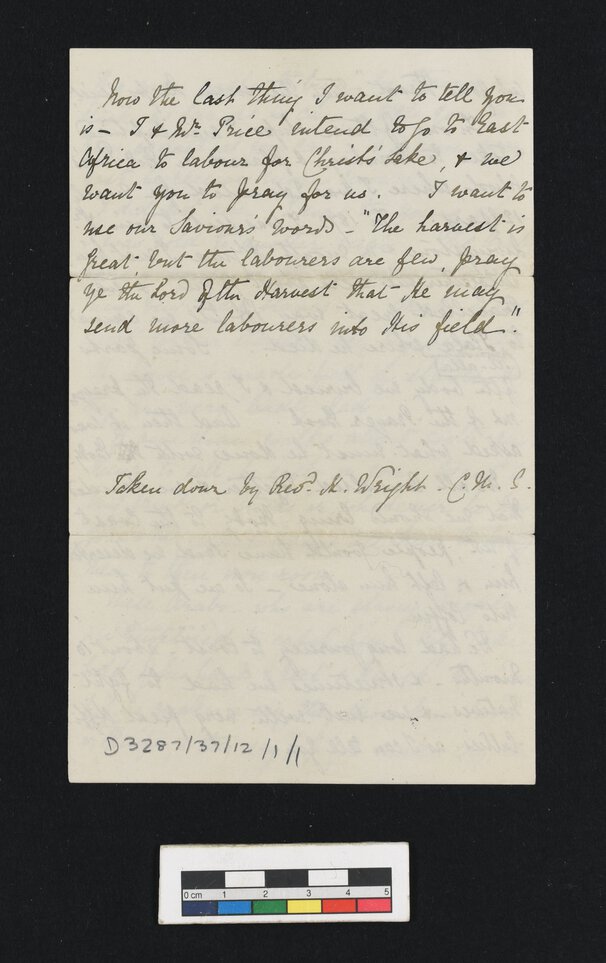 Now the last thing I want to tell you
is - I & Mr. Price intend to go to East
Africa to labour for Christ's sake, & we
want you to pray for us. I want to
use our Saviour's words - "The harvest is
great, but the labourers are few, pray
ye the Lord of the Harvest that He may
send more labourers into His field".
Taken down by Revd. H. Wright. C. M. S.
D3287/37/12/1/1
0 cm 1 2 3 4 5